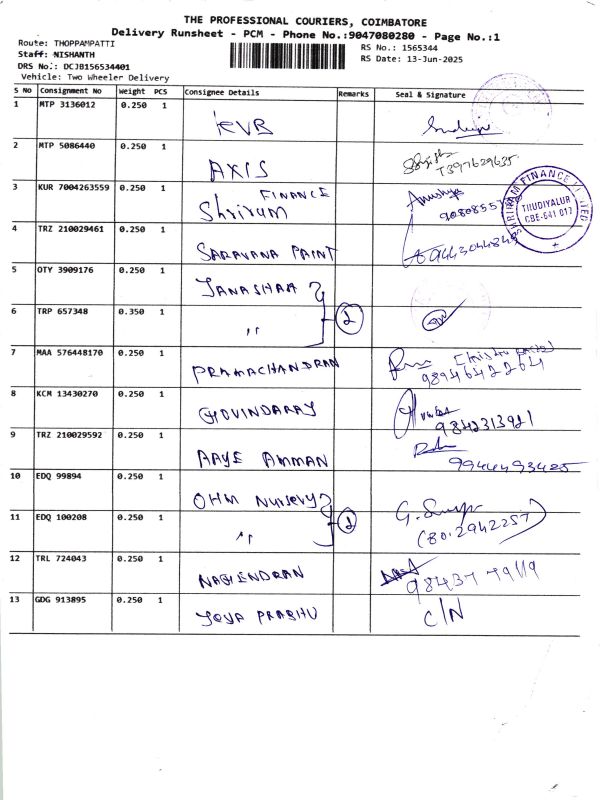 THE PROFESSIONAL COURIERS, COIMBATORE
Delivery Runsheet - PCM - Phone No.:9047080280 - Page No.:1
Route: THOPPAMPATTI
Staff: NISHANTH
DRS No.: DCJB156534401
Vehicle: Two Wheeler Delivery
RS No.: 1565344
RS Date: 13-Jun-2025
S No Consignment No Weight PCS Consignee Details Remarks Seal & Signature
1 MTP 3136012 0.250 1 KVB
2 MTP 5086440 0.250 1 AXIS
3 KUR 7004263559 0.250 1 Shriram FINANCE
SHRIRAM FINANCE LIMITED
THUDIYALUR
CBE-641 017
4 TRZ 210029461 0.250 1 SARAVANA PAINT 9443044845
5 OTY 3909176 0.250 1
6 TRP 657348 0.350 1 " 2
7 MAA 576448170 0.250 1 PRAMACHANDRAN
8 KCM 13430270 0.250 1 GOVINDARAJ
9842313921
9 TRZ 210029592 0.250 1 AAYE AMMAN
9944493425
10 EDQ 99894 0.250 1 OHM Nursery
11 EDQ 100208 0.250 1 " 2
12 TRL 724043 0.250 1 NAGENDRAN
13 GDG 913895 0.250 1 JEYA PRABHU C/N